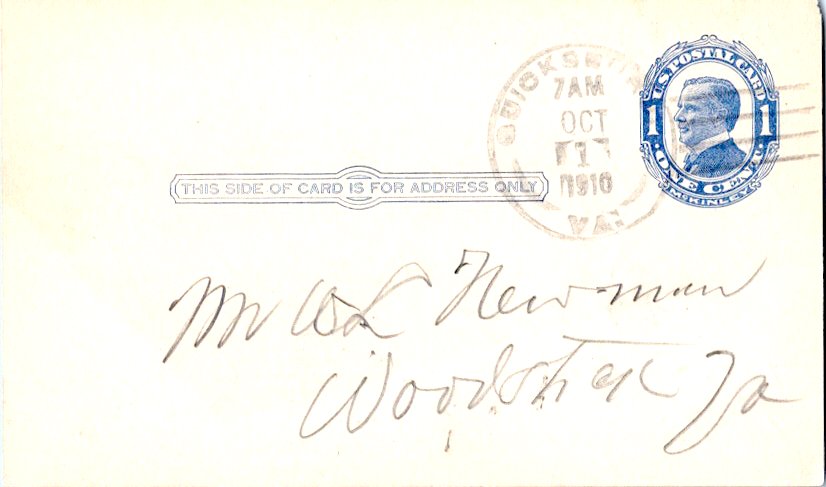 QUICKSBURG
7AM
OCT
1
1910
VA.
U.S. POSTAL CARD
1 1
ONE CENT
McKINLEY
THIS SIDE OF CARD IS FOR ADDRESS ONLY
Mr
Newman
Woodstock Va